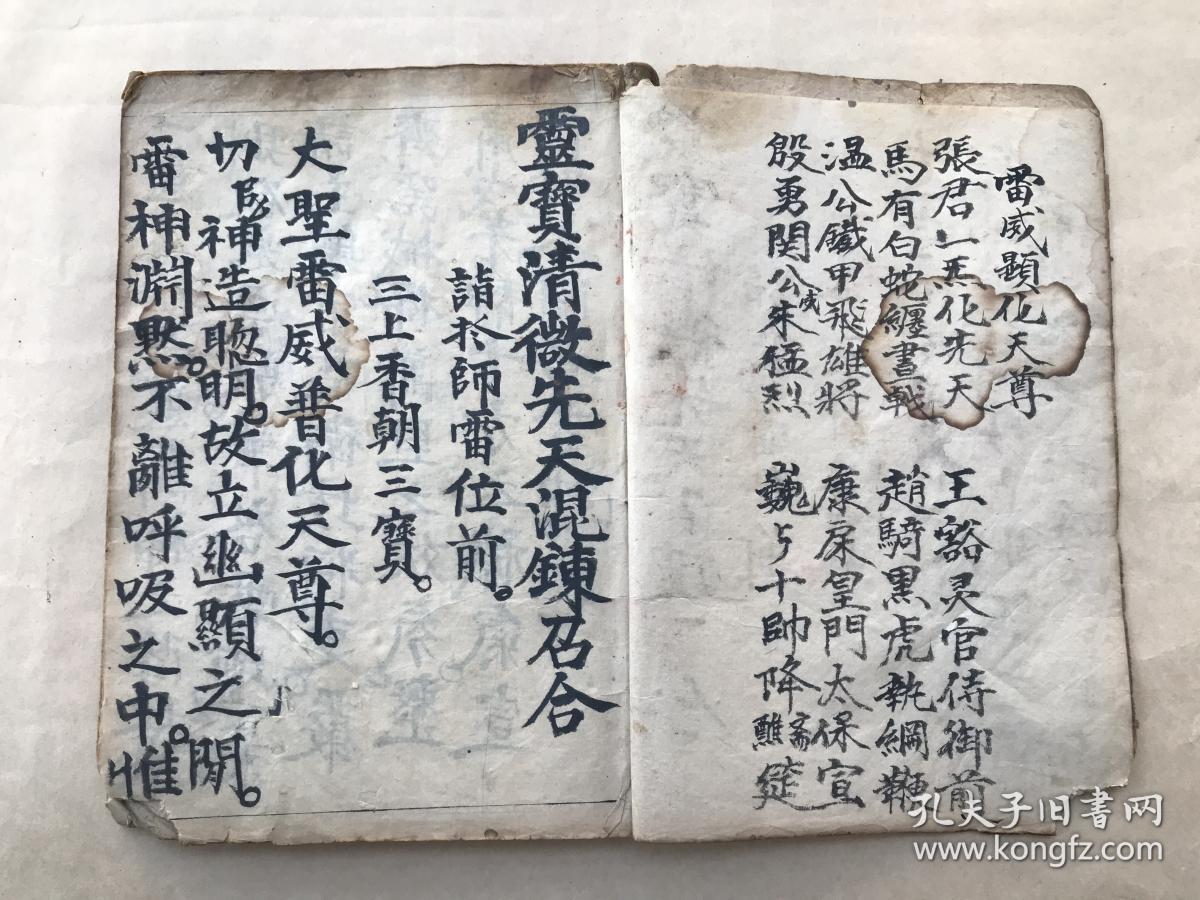 雷威顯化天尊
張君一炁化先天 王豁灵官侍御前
馬有白蛇纏書戟 趙騎黑虎執鋼鞭
温公鐵甲飛雄將 康𢇲皇門太保宣
殷勇関公成朱猛烈 巍巍十帥降齋醮筵
靈寶清微先天混鍊召合
詣於師雷位前。
三上香朝三寶。
大聖雷威普化天尊。
切民神造聰明。故立幽顯之閒。
雷神淵黙。不離呼吸之中。惟
孔夫子旧书网
www.kongfz.com